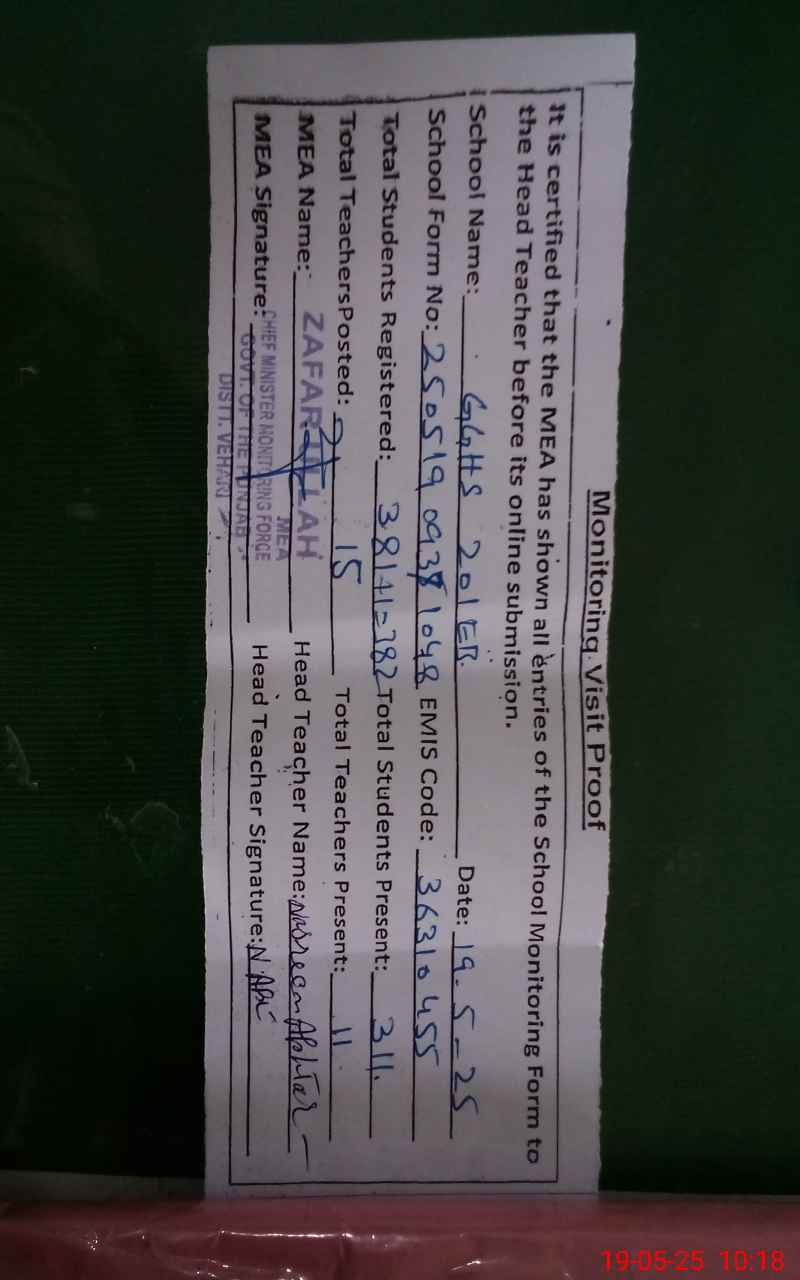 Monitoring Visit Proof
It is certified that the MEA has shown all entries of the School Monitoring Form to
the Head Teacher before its online submission.
School Name: GGHS 201 EB. Date: 19-5-25
School Form No: 250519 0938 1048 EMIS Code: 36310455
Total Students Registered: 381+1=382 Total Students Present: 311.
Total TeachersPosted: 15 Total Teachers Present: 11
MEA Name: ZAFAR ULLAH Head Teacher Name: Nasreen Akhtar
MEA
MEA Signature: CHIEF MINISTER MONITORING FORCE Head Teacher Signature:
GOVT. OF THE PUNJAB
DISTT. VEHARI
19-05-25 10:18